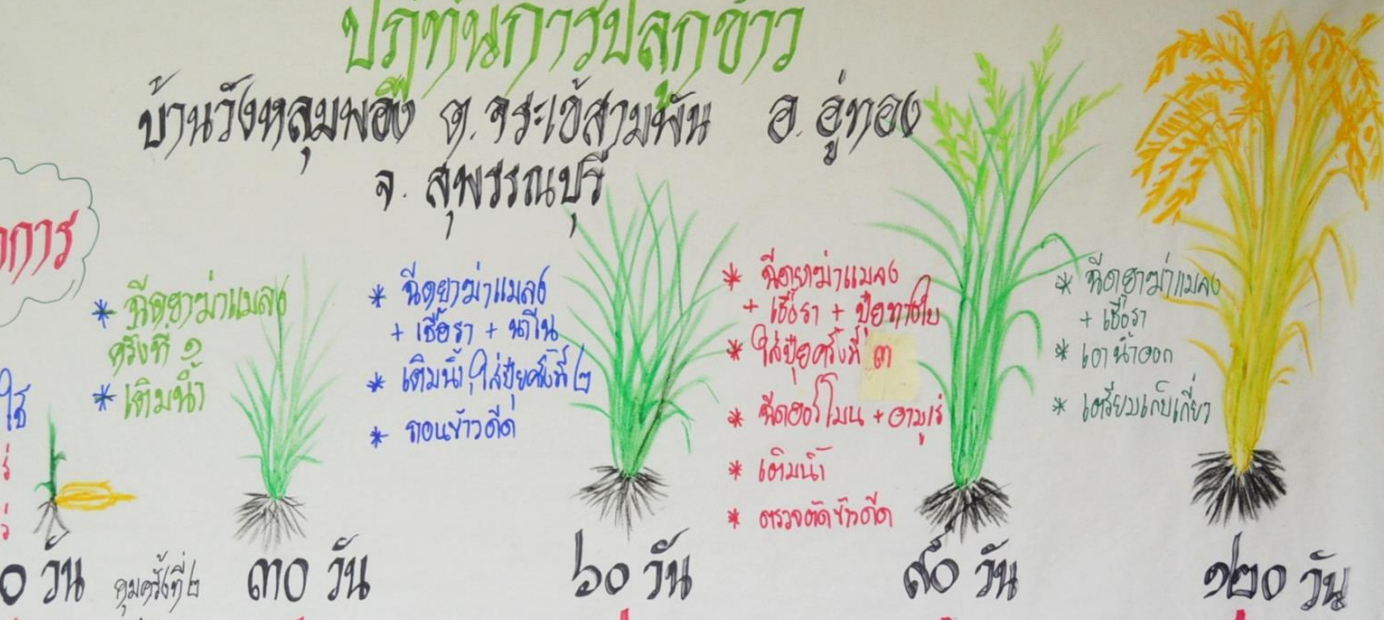 ปฏิทินการปลูกข้าว
บ้านวังหลุมพอง ต.จระเข้สามพัน อ.อู่ทอง
จ.สุพรรณบุรี
การ
ใช้
* ฉีดยาฆ่าแมลง
ครั้งที่ ๑
* เติมน้ำ
* ฉีดยาฆ่าแมลง
+ เชื้อรา +
* เติมน้ำ,ใส่ปุ๋ยครั้งที่ ๒
* ถอนข้าวดีด
* ฉีดยาฆ่าแมลง
+ เชื้อรา + ปุ๋ยทางใบ
* ใส่ปุ๋ยครั้งที่ ๓
* ฉีดฮอร์โมน +
* เติมน้ำ
* ตรวจตัดข้าวดีด
* ฉีดยาฆ่าแมลง
+ เชื้อรา
* เอาน้ำออก
* เตรียมเก็บเกี่ยว
๐ วัน คุมครั้งที่ ๒ ๓๐ วัน ๖๐ วัน ๙๐ วัน ๑๒๐ วัน